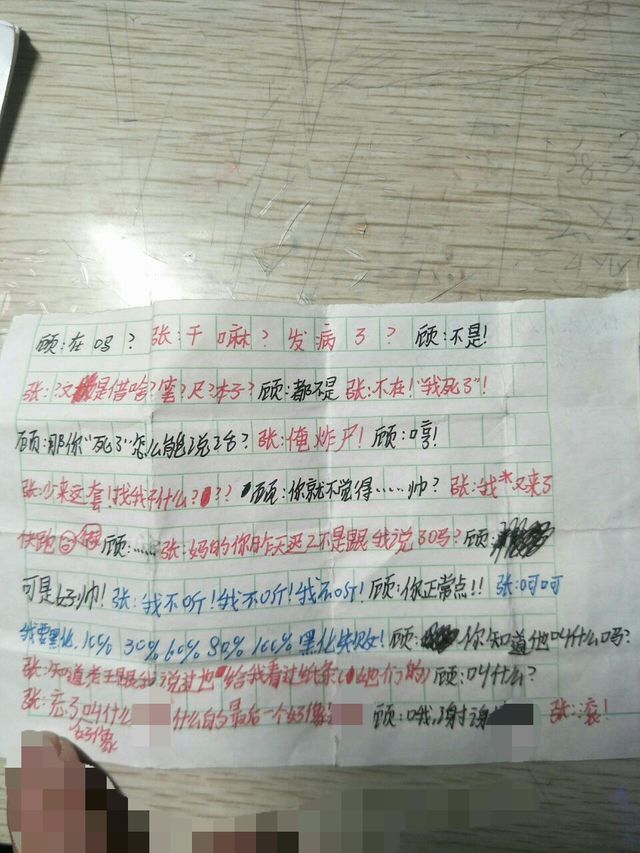 顾:在吗? 张:干嘛? 发病了? 顾:不是!
张:?又是借啥?笔?尺?本子? 顾:都不是 张:不在!"我死了"!
顾:那你"死了"怎么能说话? 张:俺炸尸! 顾:哼!
张:少来这套!找我干什么??? 顾:你就不觉得……帅? 张:我*又来了
快跑 顾:…… 张:妈的你昨天迟不是跟我说30吗? 顾:
可是好帅! 张:我不听!我不听!我不听! 顾:你正常点!! 张:呵呵
我要黑化,10% 30% 60% 80% 100% 黑化失败! 顾: 你知道他叫什么吗?
张:知道老王跟我说过他给我看过纸条(他们的) 顾:叫什么?
张:忘了叫什么 什么的最后一个好像 顾:哦,谢谢 张:滚!
好像